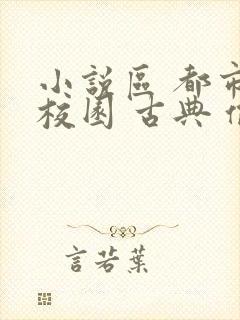 小說區 都市
校園 古典
言若葉